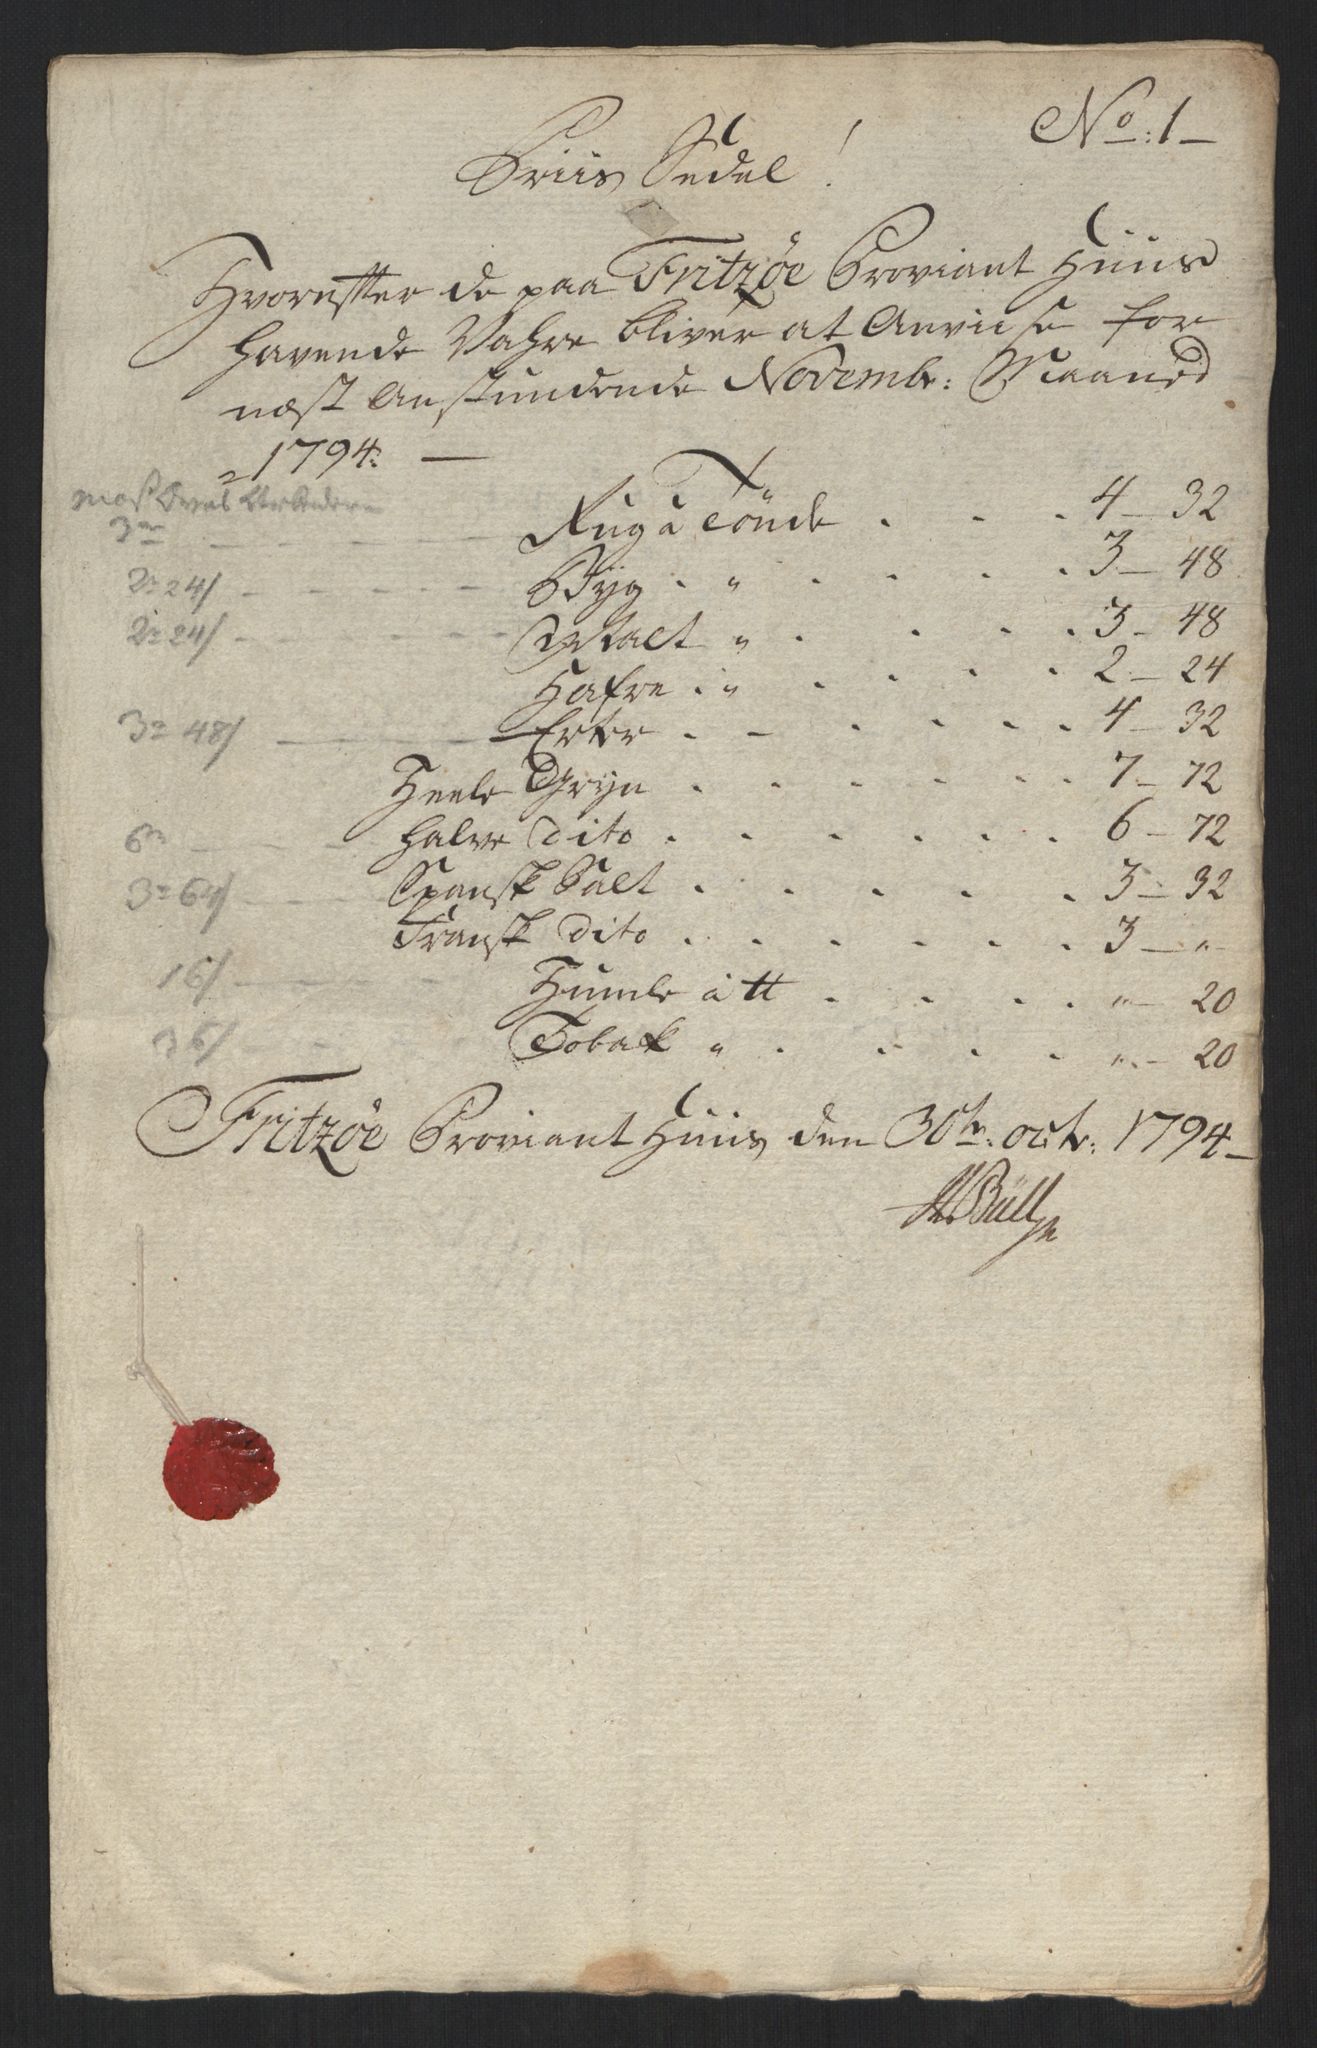 No: 1
Priis Sedel!
Hvorefter de paa Fritzøe Proviant Huus
havende Vahre bliver at Anviise for
næst Anstundende Novembr: Maaned
1794. —
3 — Rug à Tönde . . . 4 — 32
2 24/ — Byg . " . . . . 3 — 48
2 24/ — Malt " . . . . 3 — 48
Hafre . " . . . . 2 — 24
3 48/ — Erter . . . . . 4 — 32
Heele Gryn . . . . . 7 — 72
6 — halve dito . . . . . 6 — 72
3 64/ — Spansk Salt . . . . . 3 — 32
Fransk dito . . . . . 3 — "
16/ — Humle à ℔ . . . . " — 20
36/ — Tobak " . . . . " — 20
Fritzøe Proviant Huus den 30te octr: 1794